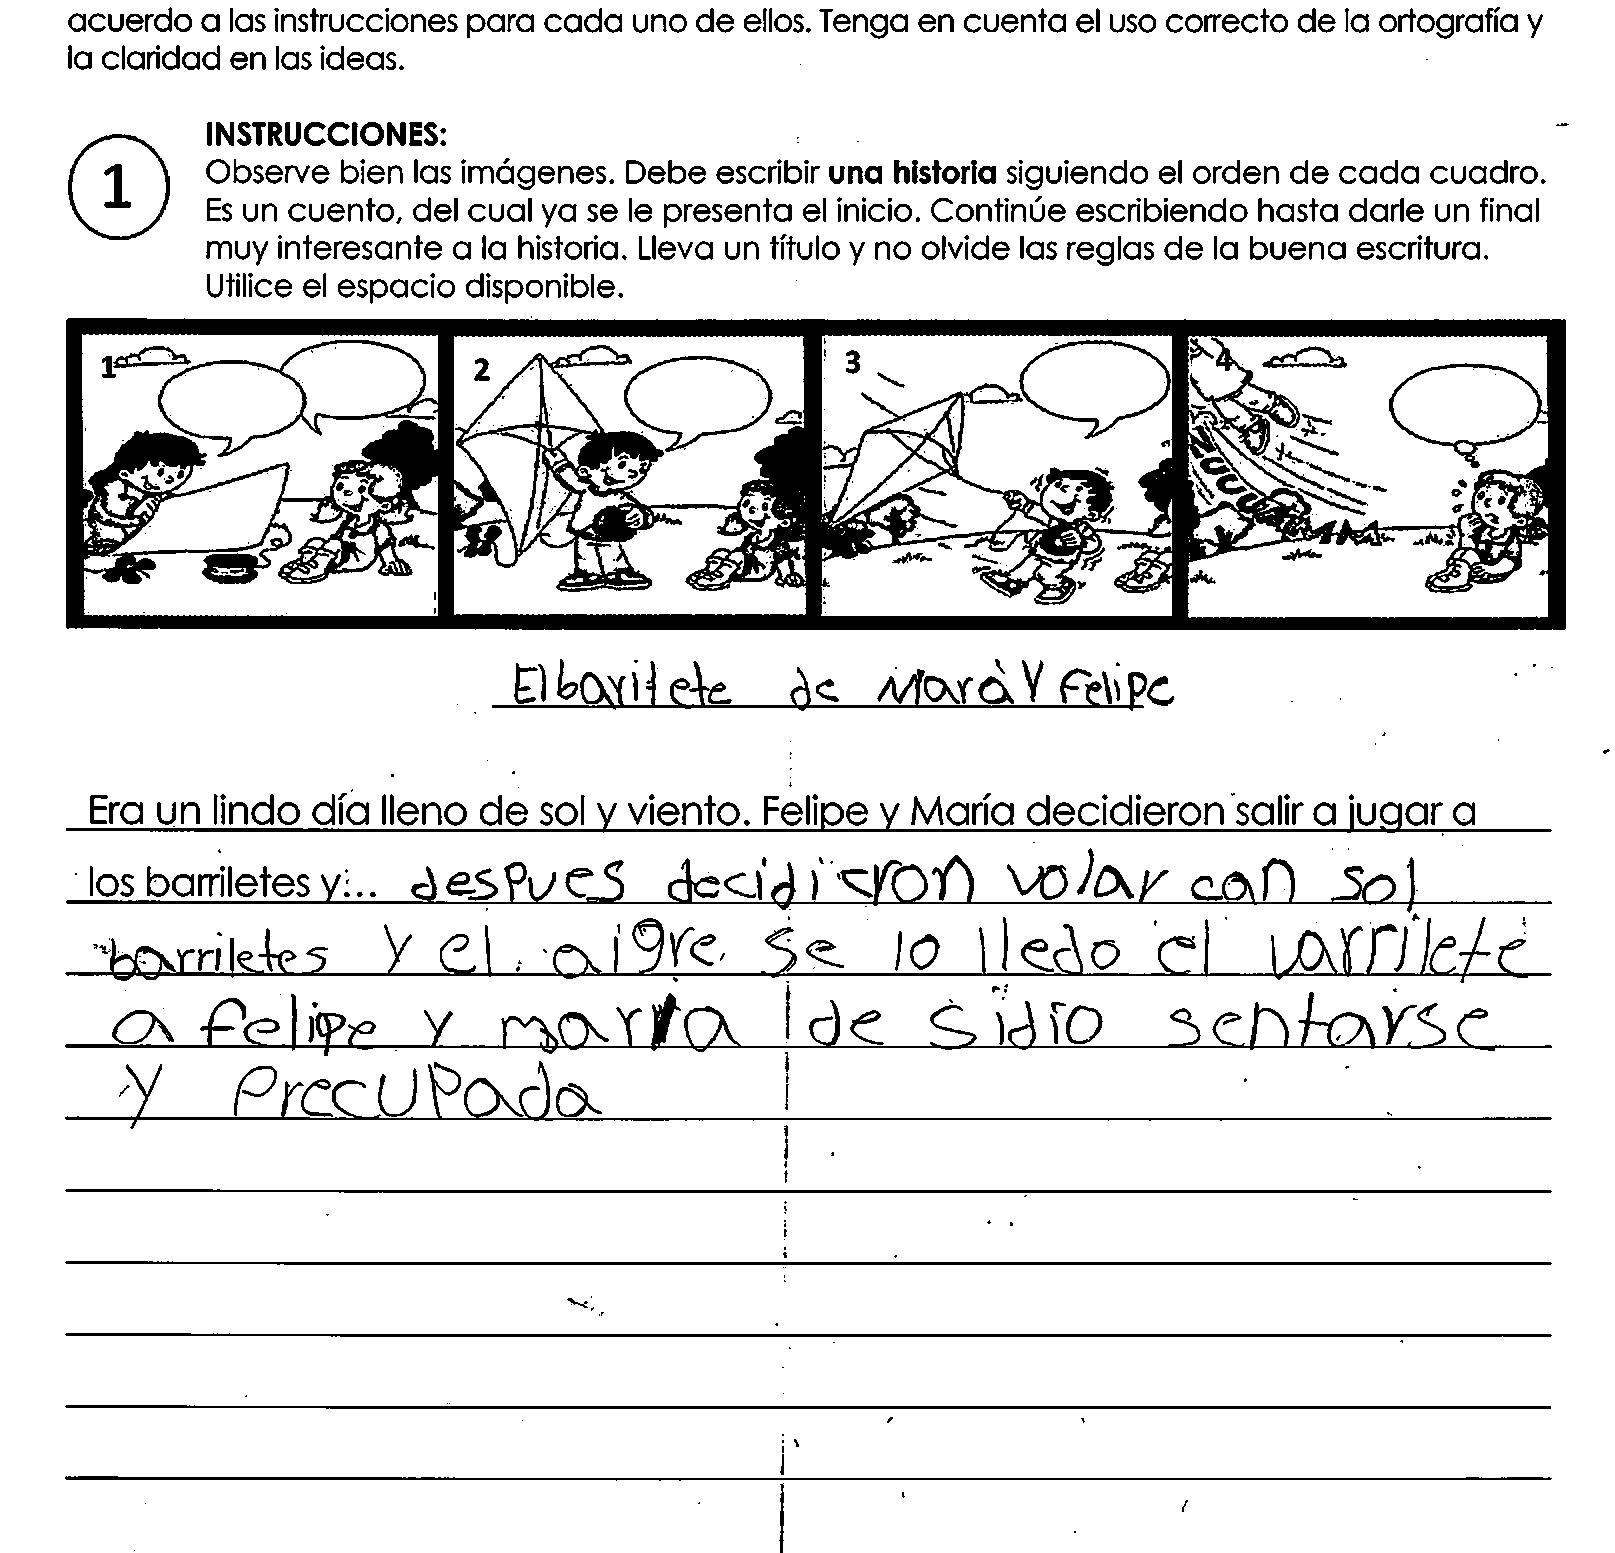 acuerdo a las instrucciones para cada uno de ellos. Tenga en cuenta el uso correcto de la ortografía y
la claridad en las ideas.
1
INSTRUCCIONES:
Observe bien las imágenes. Debe escribir una historia siguiendo el orden de cada cuadro.
Es un cuento, del cual ya se le presenta el inicio. Continúe escribiendo hasta darle un final
muy interesante a la historia. Lleva un título y no olvide las reglas de la buena escritura.
Utilice el espacio disponible.
1 2 3 4
El barilete de Mará Y Felipe
Era un lindo día lleno de sol y viento. Felipe y María decidieron salir a jugar a
los barriletes y... despues decidieron volar can sol
barriletes y el aigre se lo lledo el varrilete
a felipe y maria de sidio sentarse
y Precupada